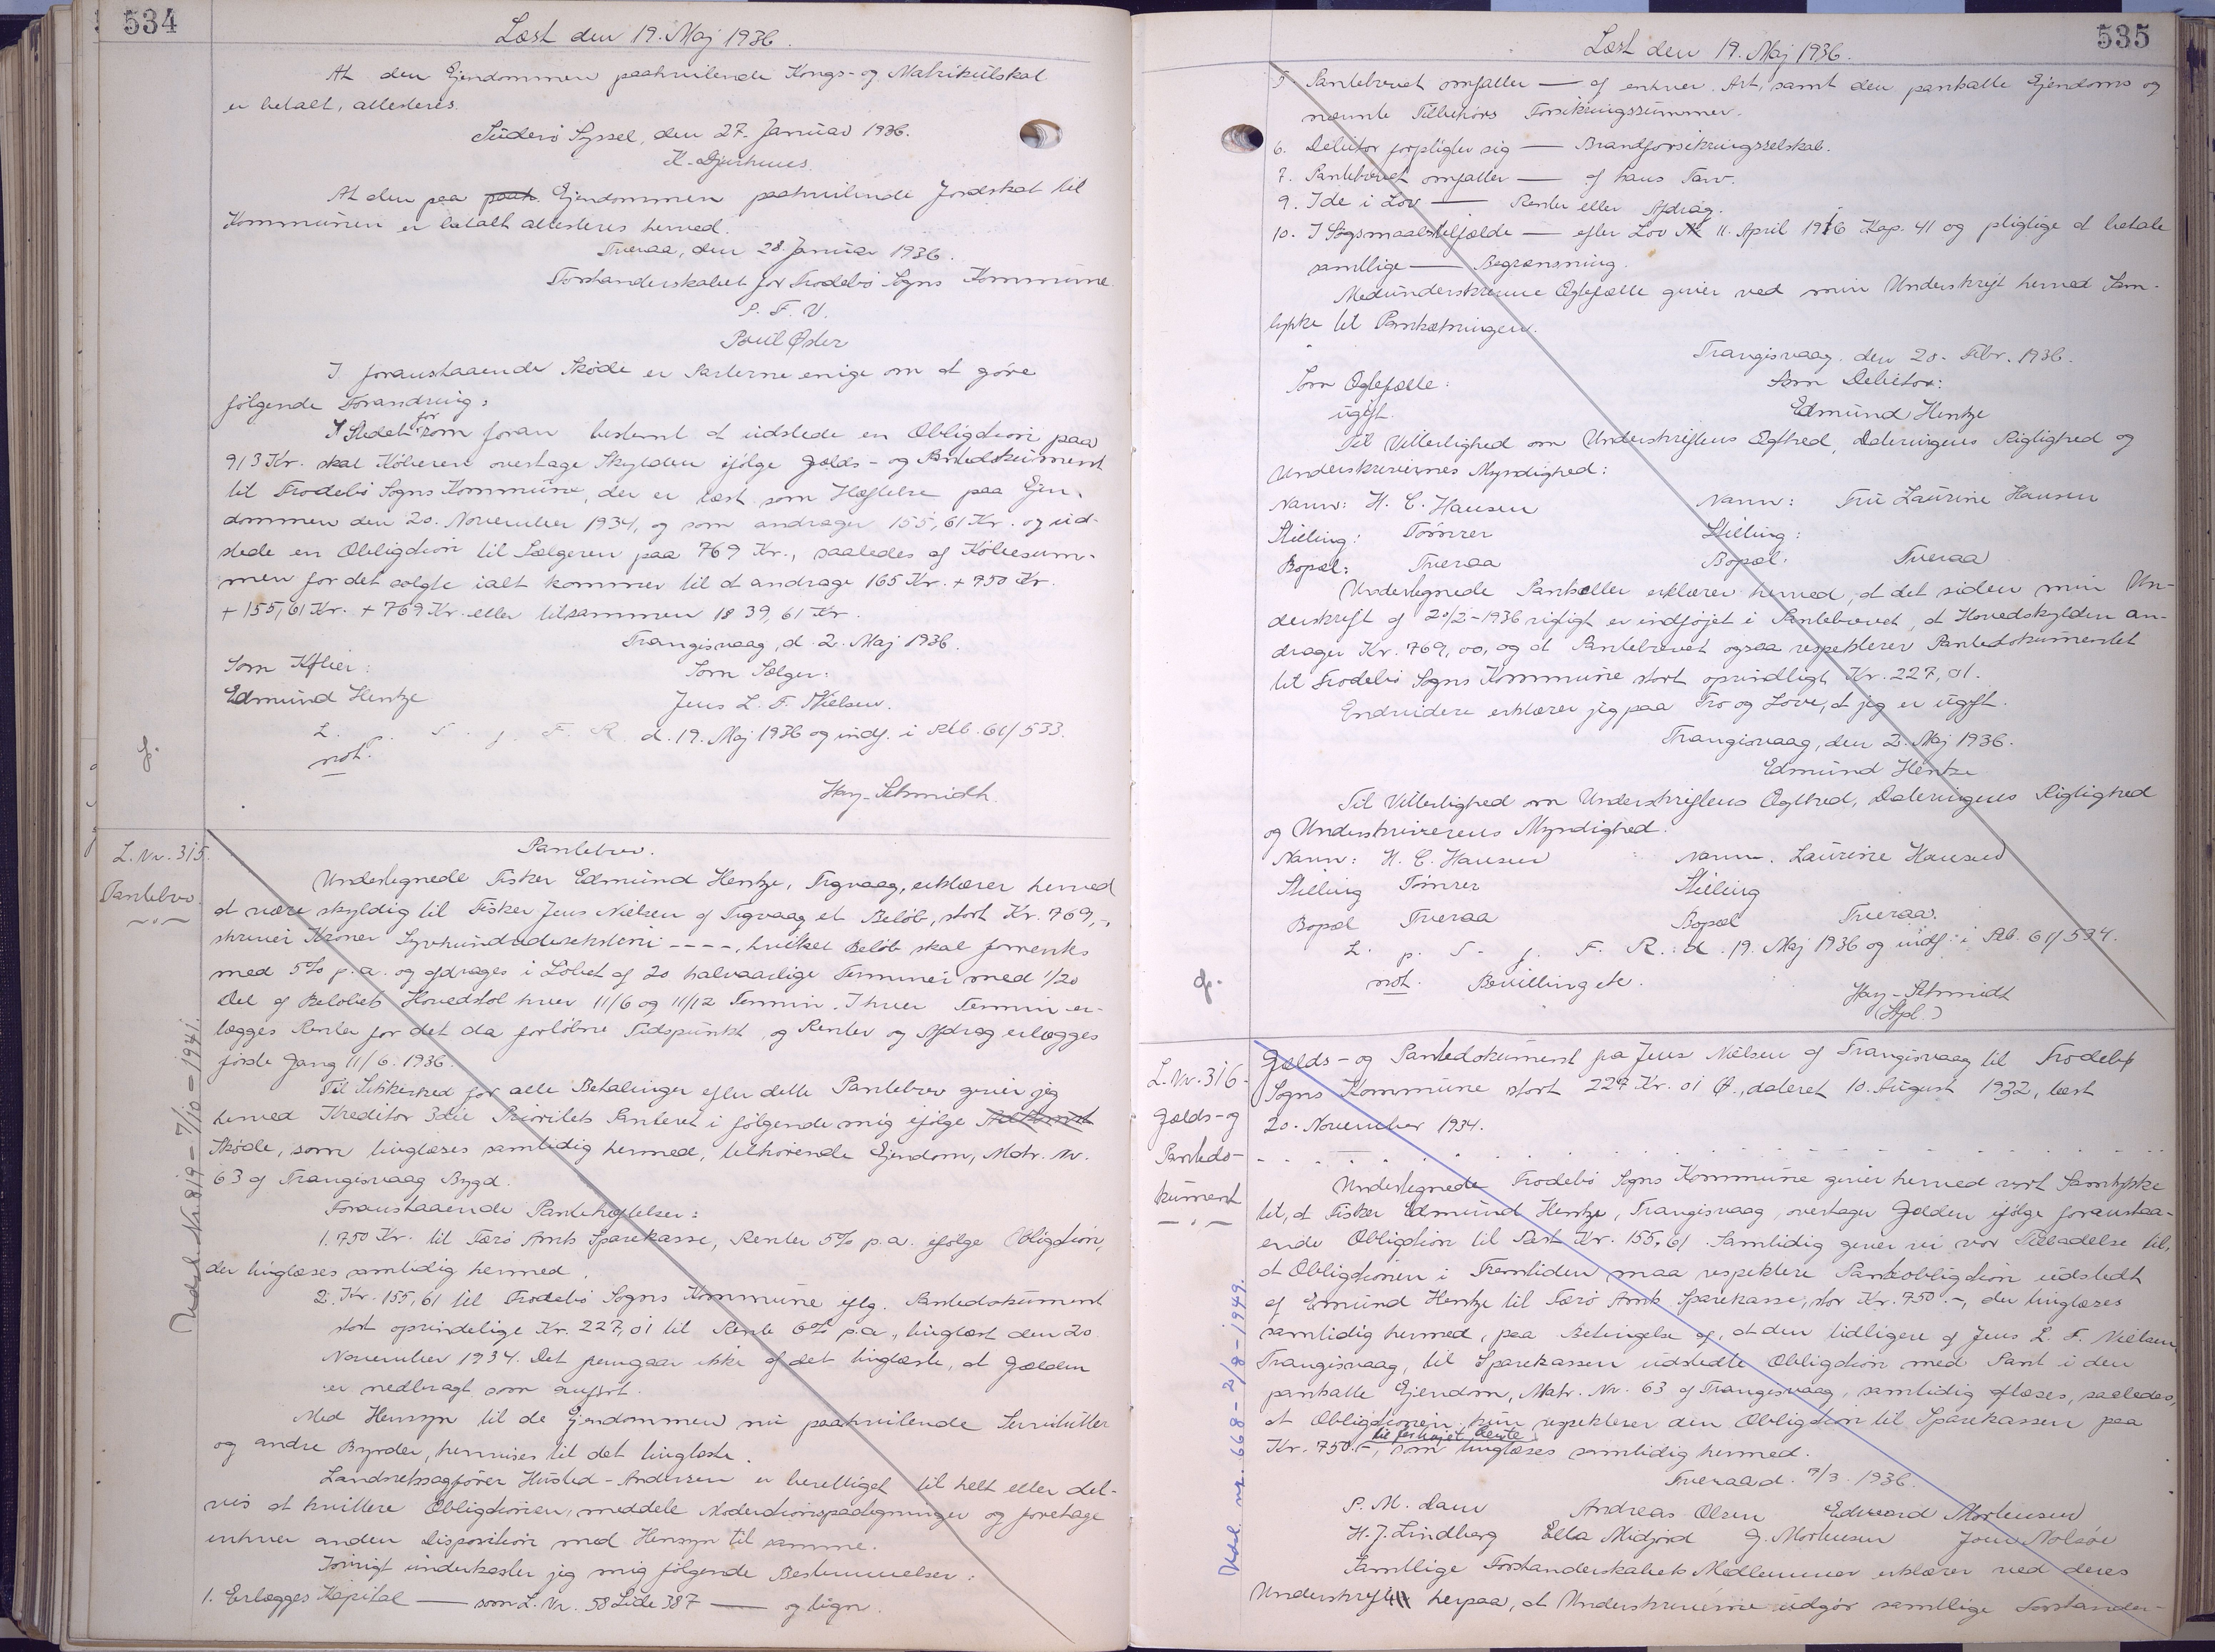 534
Læst den 19. Maj 1936.
At den Ejendommen paahvilende Kongs- og Matrikulskat
er betalt, attesteres.
Suderø Syssel, den 27. Januar 1936.
K. Djurhuus.
At den paa paah. Ejendommen paahvilende Jordskat til
Kommunen er betalt attesteres herved.
Tveraa, den 28. Januar 1936.
Forstanderskabet for Frodebø Sogns Kommune.
P. F. V.
Poul Øster
I foranstaaende Skøde er Parterne enige om at gøre
følgende Forandring:
I Stedet for som foran bestemt at udstede en Obligation paa
913 Kr. skal Køberen overtage Skylden ifølge Gælds- og Pantedokument
til Frodebø Sogns Kommune, der er læst som Hæftelse paa Ejen-
dommen den 20. November 1934, og som andrager 155,61 Kr. og ud-
stede en Obligation til Sælgeren paa 769 Kr., saaledes af Købesum-
men for det solgte ialt kommer til at andrage 165 Kr. + 750 Kr.
+ 155,61 Kr. + 769 Kr. eller tilsammen 1839,61 Kr.
Trangisvaag, d. 2. Maj 1936.
Som Køber: Som Sælger:
Edmund Hentze Jens L. F. Nielsen.
L. p. S. f. F. R. d. 19. Maj 1936 og indf. i Ptb. 61/533.
not.
Hay-Schmidt.
L. Nr. 315.
Pantebrev.
Udsl. Nr. 819 - 7/10 - 1941.
Pantebrev.
Undertegnede Fisker Edmund Hentze, Trgvaag, erklærer herved
at være skyldig til Fisker Jens Nielsen af Trgvaag et Beløb, stort Kr. 769,-,
skriver Kroner Syvhundredeseksti ni ----, hvilket Beløb skal forrentes
med 5% p.a. og afdrages i Løbet af 20 halvaarlige Terminer med 1/20
Del af Beløbets Hovedstol hver 11/6 og 11/12 Termin. I hver Termin er-
lægges Renter for det da forløbne Tidspunkt, og Renter og Afdrag erlægges
første Gang 11/6. 1936.
Til Sikkerhed for alle Betalinger efter dette Pantebrev giver jeg
herved Kreditor 3die Prioritets Panteret i følgende mig ifølge
Skøde, som tinglæses samtidig hermed, tilhørende Ejendom, Matr. Nr.
63 af Trangisvaag Bygd.
Foranstaaende Pantehæftelser:
1. 750 Kr. til Færø Amts Sparekasse, Renter 5% p.a. ifølge Obligation,
der tinglæses samtidig hermed.
2. Kr. 155,61 til Frodebø Sogns Kommune iflg. Pantedokument
stort oprindelige Kr. 227,01 til Rente 6% p.a., tinglæst den 20
November 1934. Det fremgaar ikke af det tinglæste, at Gælden
er nedbragt som anført.
Med Hensyn til de Ejendommen nu paahvilende Servitutter
og andre Byrder, henvises til det tinglæste.
Landsretssagfører Husted-Andersen er berettiget til helt eller del-
vis at kvittere Obligationen, meddele Moderationspaategninger og foretage
enhver anden Disposition med Hensyn til samme.
Iøvrigt underkaster jeg mig følgende Bestemmelser:
1. Erlægges Kapital — som L. Nr. 58 Side 387 — og lign.
535
Læst den 19. Maj 1936.
5 Pantebrevet omfatter — af enhver Art, samt den pantsatte Ejendoms og
nævnte Tilbehørs Forsikringssummer.
6. Debitor forpligter sig — Brandforsikringsselskab.
7. Pantebrevet omfatter — af hans Tarv.
9. I de i Lov — Renter eller Afdrag.
10. I Søgsmaalstilfælde — efter Lov 11. April 1916 Kap. 41 og pligtige at betale
samtlige — Begrænsning.
Medunderskrevne Ægtefælle giver ved min Underskrift herved Sam-
tykke til Pantsætningen.
Trangisvaag, den 20. Febr. 1936.
Som Ægtefælle: Som Debitor:
ugift. Edmund Hentze
Til Vitterlighed om Underskriftens Ægthed, Dateringens Rigtighed og
Underskrivernes Myndighed:
Navn: H. C. Hansen Navn: Fru Laurine Hansen
Stilling: Tømrer Stilling:
Bopæl: Tveraa Bopæl: Tveraa
Undertegnede Pantsætter erklærer herved, at det siden min Un-
derskrift af 20/2-1936 rigtigt er indføjet i Pantebrevet, at Hovedskylden an-
drager Kr. 769,00, og at Pantebrevet ogsaa respekterer Pantedokumentet
til Frodebø Sogns Kommune stort oprindligt Kr. 227,01.
Endvidere erklærer jeg paa Tro og Love, at jeg er ugift.
Trangisvaag, den 2. Maj 1936.
Edmund Hentze
Til Vitterlighed om Underskriftens Ægthed, Dateringens Rigtighed
og Underskriverens Myndighed.
Navn: H. C. Hansen Navn. Laurine Hansen
Stilling Tømrer Stilling
Bopæl Tveraa Bopæl Tveraa.
L. p. S. f. F. R. d. 19. Maj 1936 og indf. i Ptb. 61/534.
not. Bevilling etc.
Hay-Schmidt
(Stpl.)
L. Nr. 316.
Gælds- og
Pantedo-
kument
Udsl. nr. 668 - 2/8 - 1949.
Gælds- og Pantedokument fra Jens Nielsen af Trangisvaag til Frodebø
Sogns Kommune stort 227 Kr. 01 Ø., dateret 10. August 1932, læst
20. November 1934.
Undertegnede Frodebø Sogns Kommune giver herved vort Samtykke
til, at Fisker Edmund Hentze, Trangisvaag, overtager Gælden ifølge foranstaa-
ende Obligation til Rest Kr. 155,61. Samtidig giver vi vor Tilladelse til,
at Obligationen i Fremtiden maa respektere Panteobligation udstedt
af Emund Hentze til Færø Amts Sparekasse, stor Kr. 750.-, der tinglæses
samtidig hermed, paa Betingelse af, at den tidligere af Jens L. F. Nielsen,
Trangisvaag, til Sparekassen udstedte Obligation med Pant i den
pantsatte Ejendom, Matr. Nr. 63 af Trangisvaag, samtidig aflæses, saaledes,
at Obligationen kun respekterer den Obligation til Sparekassen paa
til forhøjet Rente
Kr. 750.-, som tinglæses samtidig hermed.
Tveraa d. 7/3. 1936.
P. M. Dam Andreas Olsen Edward Mortensen
H. J. Lindberg Ella Midjord J. Mortensen Joen Nolsøe
Samtlige Forstanderskabets Medlemmer erklærer ved deres
Underskrift herpaa, at Underskriverne udgør samtlige Forstander-